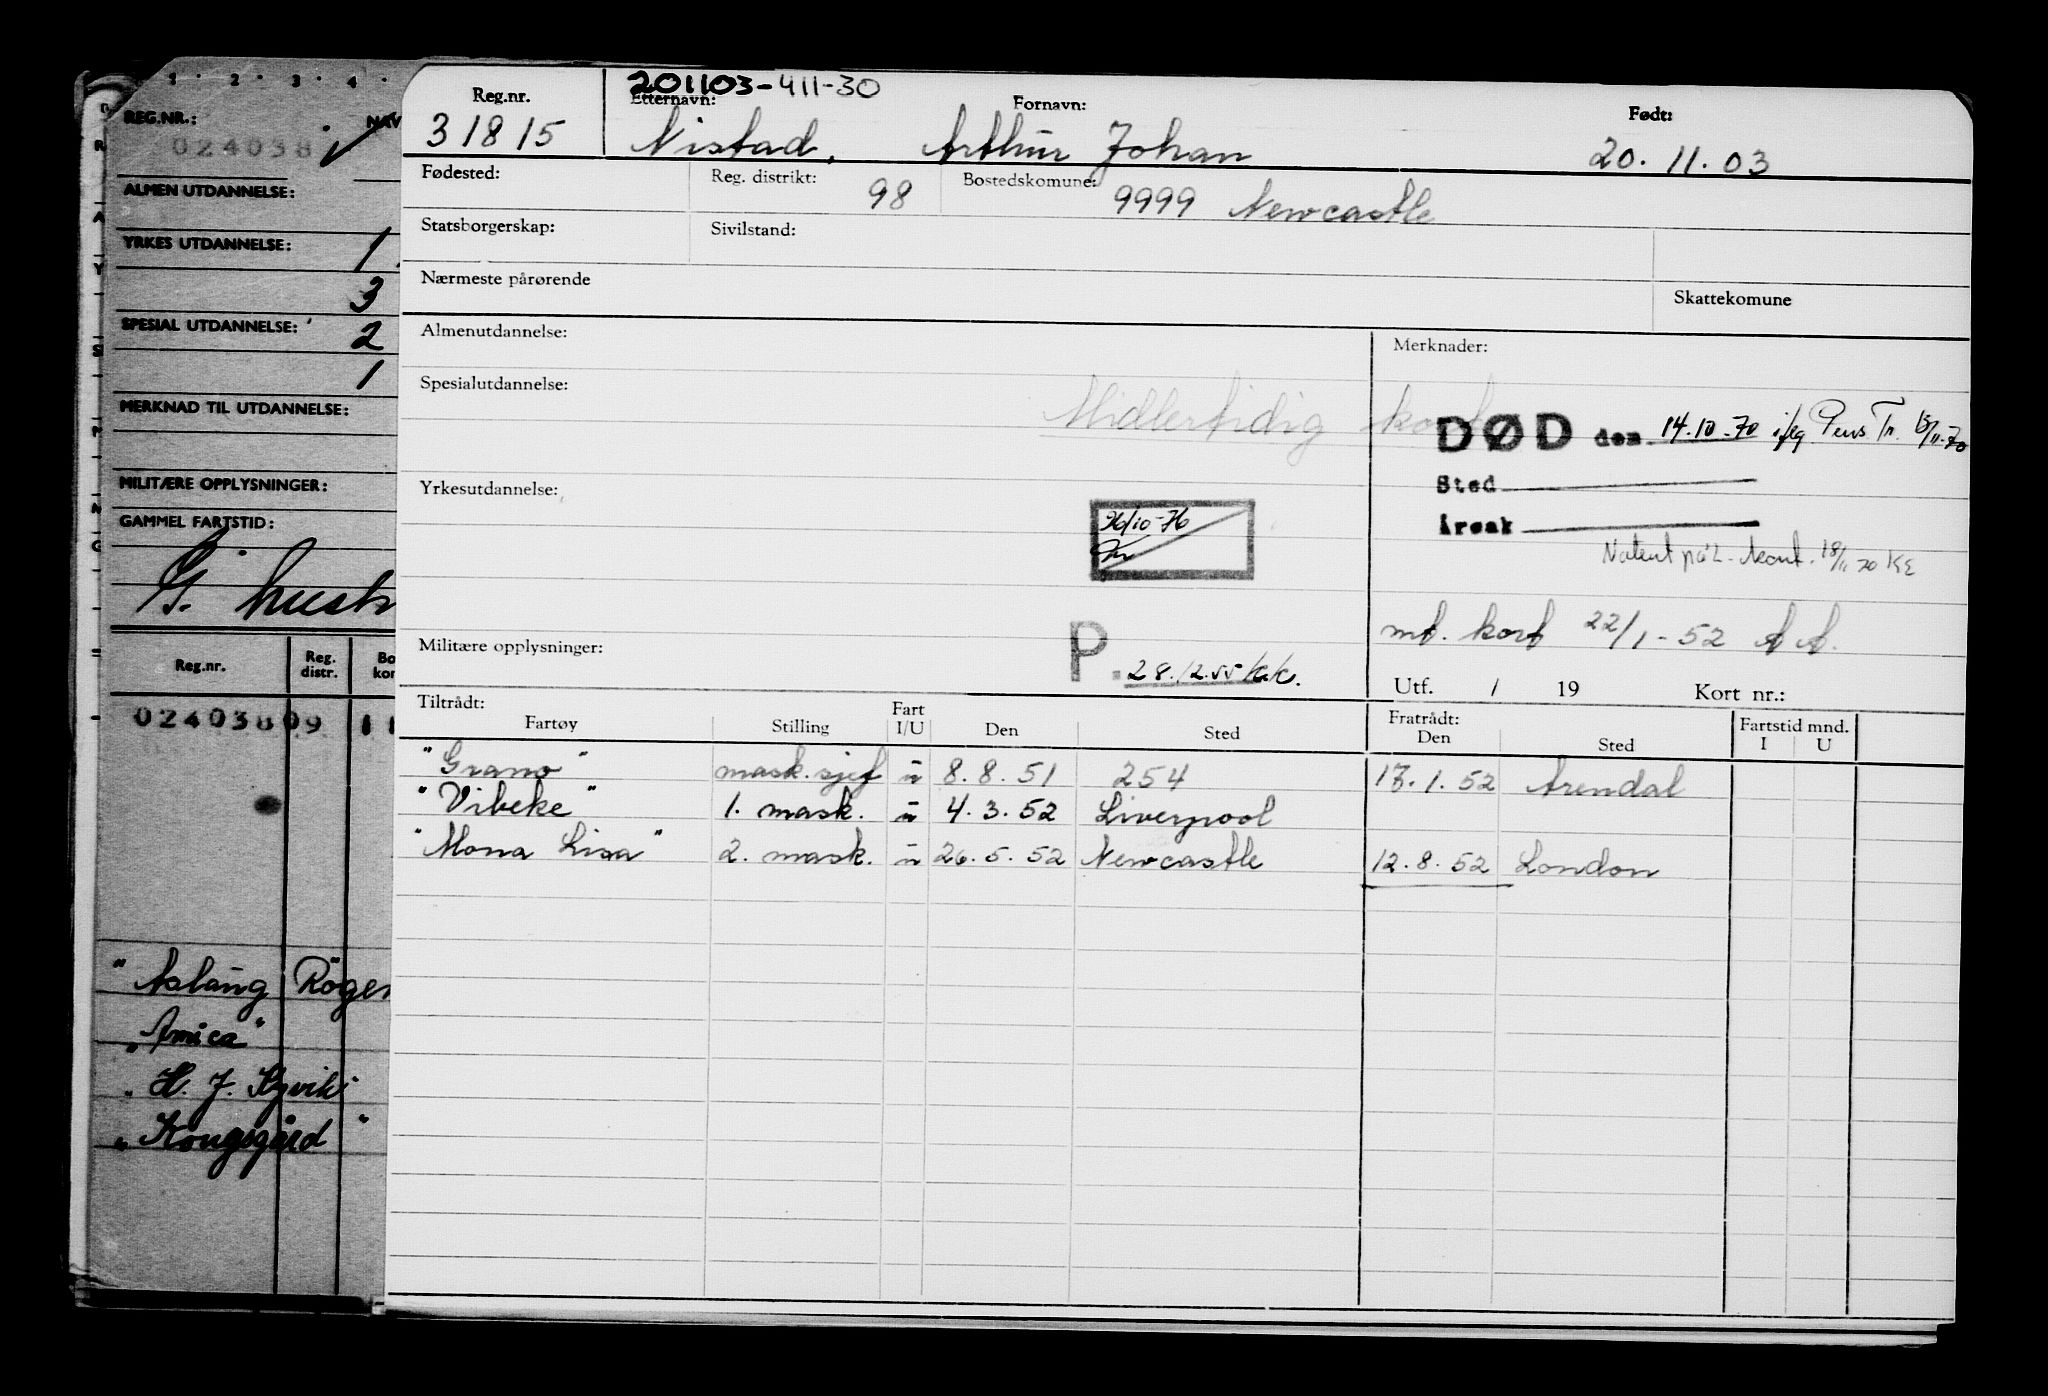 1 . 2 . 3 . 4 .
REG.NR.:
NAV
024038
ALMEN UTDANNELSE:
YRKES UTDANNELSE: 1
3
SPESIAL UTDANNELSE: 2
1
MERKNAD TIL UTDANNELSE:
MILITÆRE OPPLYSNINGER:
GAMMEL FARTSTID:
Reg.nr. Reg. distr. Bo kor
02403809 11
"Aslaug Røgen
"Amica"
"Kongsgård"
201103-411-30
Reg.nr. Etternavn: Fornavn: Født:
31815 Nistad, Arthur Johan 20.11.03
Fødested: Reg. distrikt: 98 Bostedskomune: 9999 Newcastle
Statsborgerskap: Sivilstand:
Nærmeste pårørende Skattekomune
Almenutdannelse: Merknader:
Spesialutdannelse: Midlertidig kort
DØD den 14.10.70 ifg. Pens Tr. 13/11-70
Sted
Årsak
Yrkesutdannelse:
26/10-76
Notert på L-kont. 18/11 70 KE
md. kort 22/1-52 A A.
Militære opplysninger: P. 28.12.55 kk.
Utf. / 19 Kort nr.:
Tiltrådt: Fratrådt: Fartstid mnd.
Fartøy Stilling Fart I/U Den Sted Den Sted I U
"Grano" mask.sjef u 8.8.51 254 17.1.52 Arendal
"Vibeke" 1. mask. u 4.3.52 Liverpool
"Mona Lisa" 2. mask. u 26.5.52 Newcastle 12.8.52 London